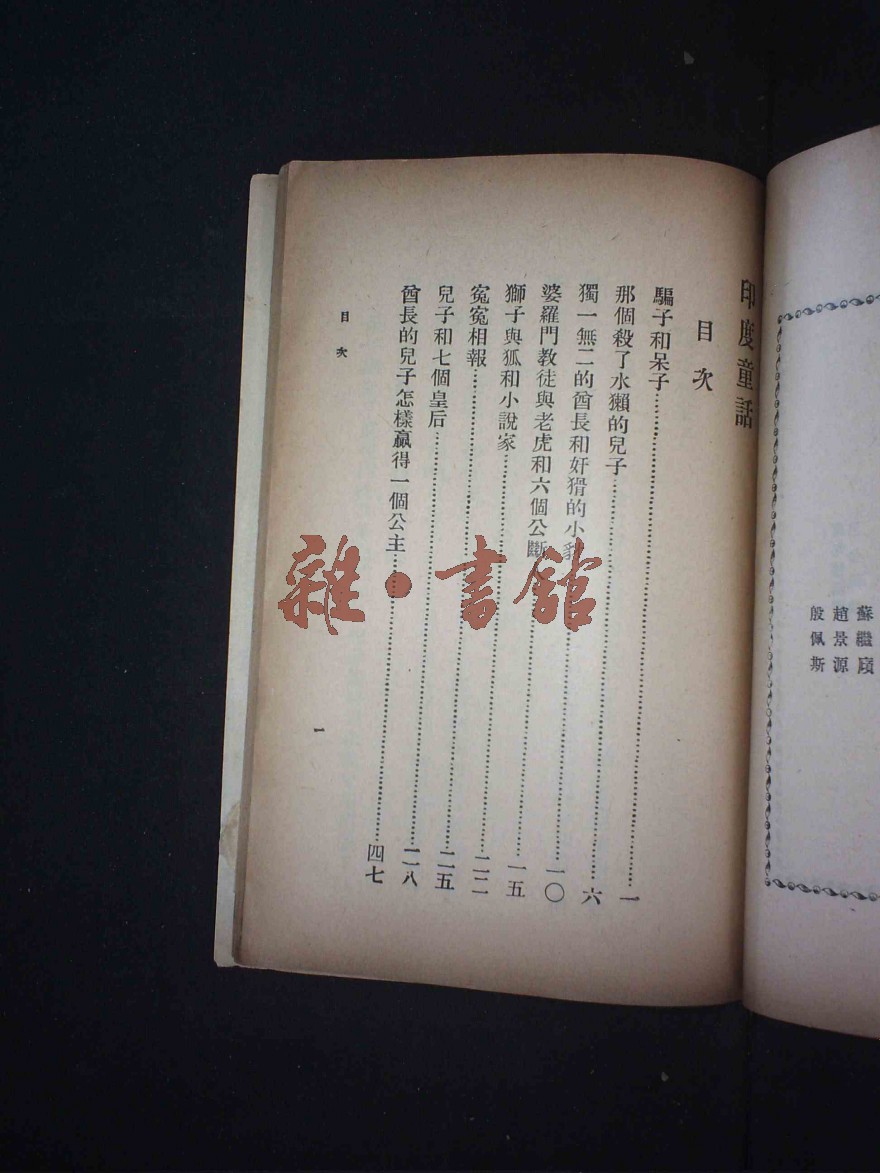 蘇繼廎
趙景源
殷佩斯
印度童話
目次
騙子和呆子……一
那個殺了水獺的兒子……六
獨一無二的酋長和奸猾的小……一〇
婆羅門教徒與老虎和六個公斷……一五
獅子與狐和小說家……二二
冤冤相報……二五
兒子和七個皇后……二八
酋長的兒子怎樣贏得一個公主……四七
目次
一
雜·書館